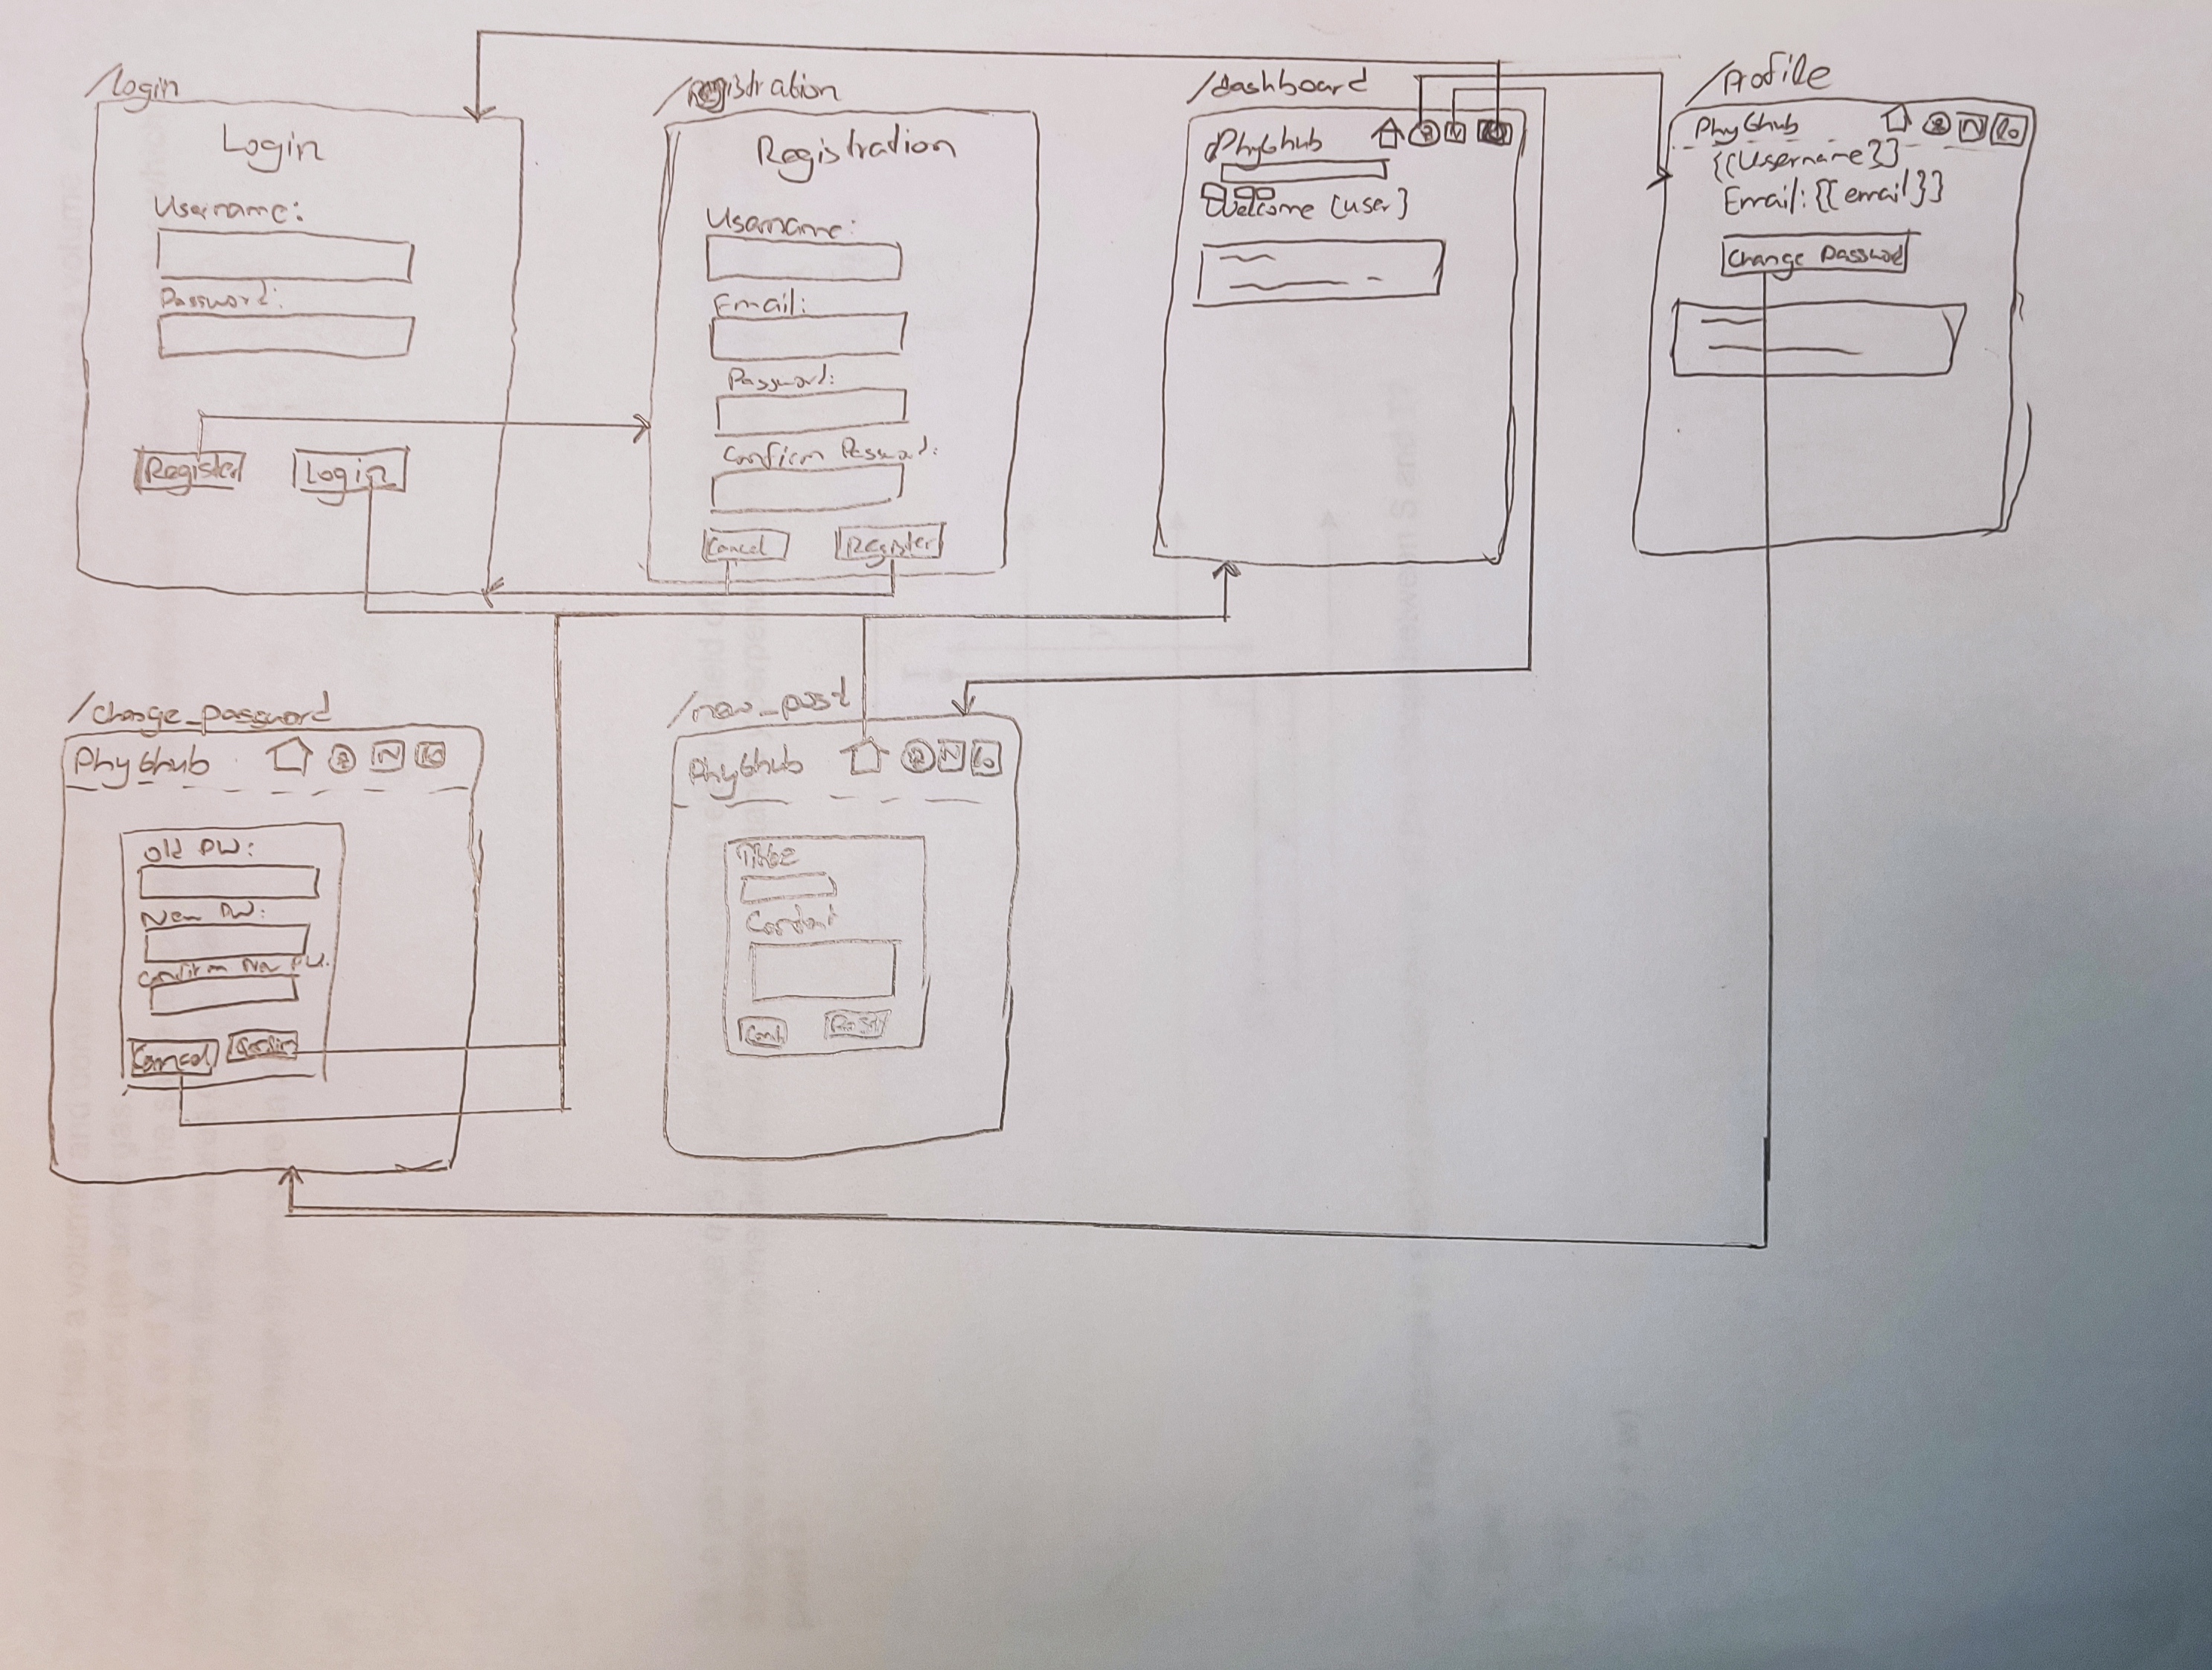 /login
Login
Username:
Password:
Register Login
/Registration
Registration
Username:
Email:
Password:
Confirm Password:
Cancel Register
/dashboard
Phy6hub
Welcome {user}
/Profile
Phy6hub N Lo
{{Username}}
Email: {{email}}
Change Password
/change_password
Phy6hub N Lo
Old PW:
New PW:
Confirm New PW:
Cancel Confirm
/new_post
Phy6hub N Lo
Title
Content
Post